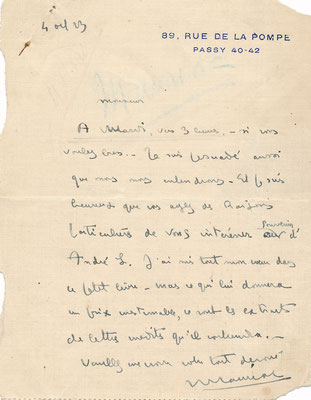 4 oct 23
89, RUE DE LA POMPE
PASSY 40-42
Monsieur
A Mardi, vers 3 heures, - si vous
voulez bien. - Je suis persuadé aussi
que nous nous entendrons. Et je suis
heureux que vous ayez des raisons
particulières de vous intéresser au souvenir d'
André L. J'ai mis tout mon cœur dans
ce petit livre - mais ce qui lui donnera
un prix inestimable, ce sont les extraits
de lettres inédits qu'il contiendra. -
Veuillez me croire votre tout dévoué
Mauriac